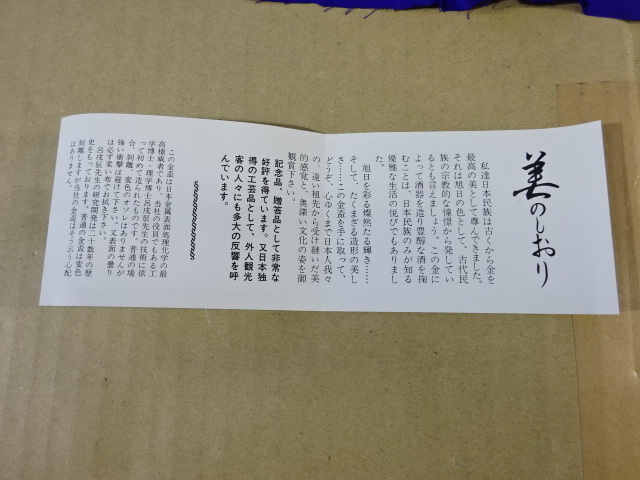 美のしおり
私達日本民族は古くから金を
最高の美として尊んできました。
それは旭日の色として、古代民
族の宗教的な憧憬から発してい
るとも言えましょう。この金に
よって酒器を造り豊醇な酒を掬
むことは、日本民族のみが知る
優雅な生活の悦びでもありまし
た。
旭日を彩る燦然たる輝き……
そして、たくまざる造形の美し
さ……この金盃を手に取って、
どうぞ、心ゆくまで日本人我々
の、遠い祖先から受け継いだ美
的感覚と、奥深い文化の姿を御
観賞下さい。
記念品、贈答品として非常な
好評を得ています。又日本独
得の工芸品として、外人観光
客の人々にも多大の反響を呼
んでいます。
この金盃は日本金属表面処理化学の最
高権威者であり、当社の役員でもある工
学博士・理学博士呂戊辰先生の技術に依
って初めて造られたものです。普通の場
合、剥離や変色のオソレはありませんが
強い衝撃は避けて下さい。又表面の曇り
は必ず柔い布でお拭き下さい。
呂戊辰先生の研究開発は二十数年の歴
史をもっております。普通の金盃は変色
剥離しますが当社の金盃はそう云う心配
はありません。